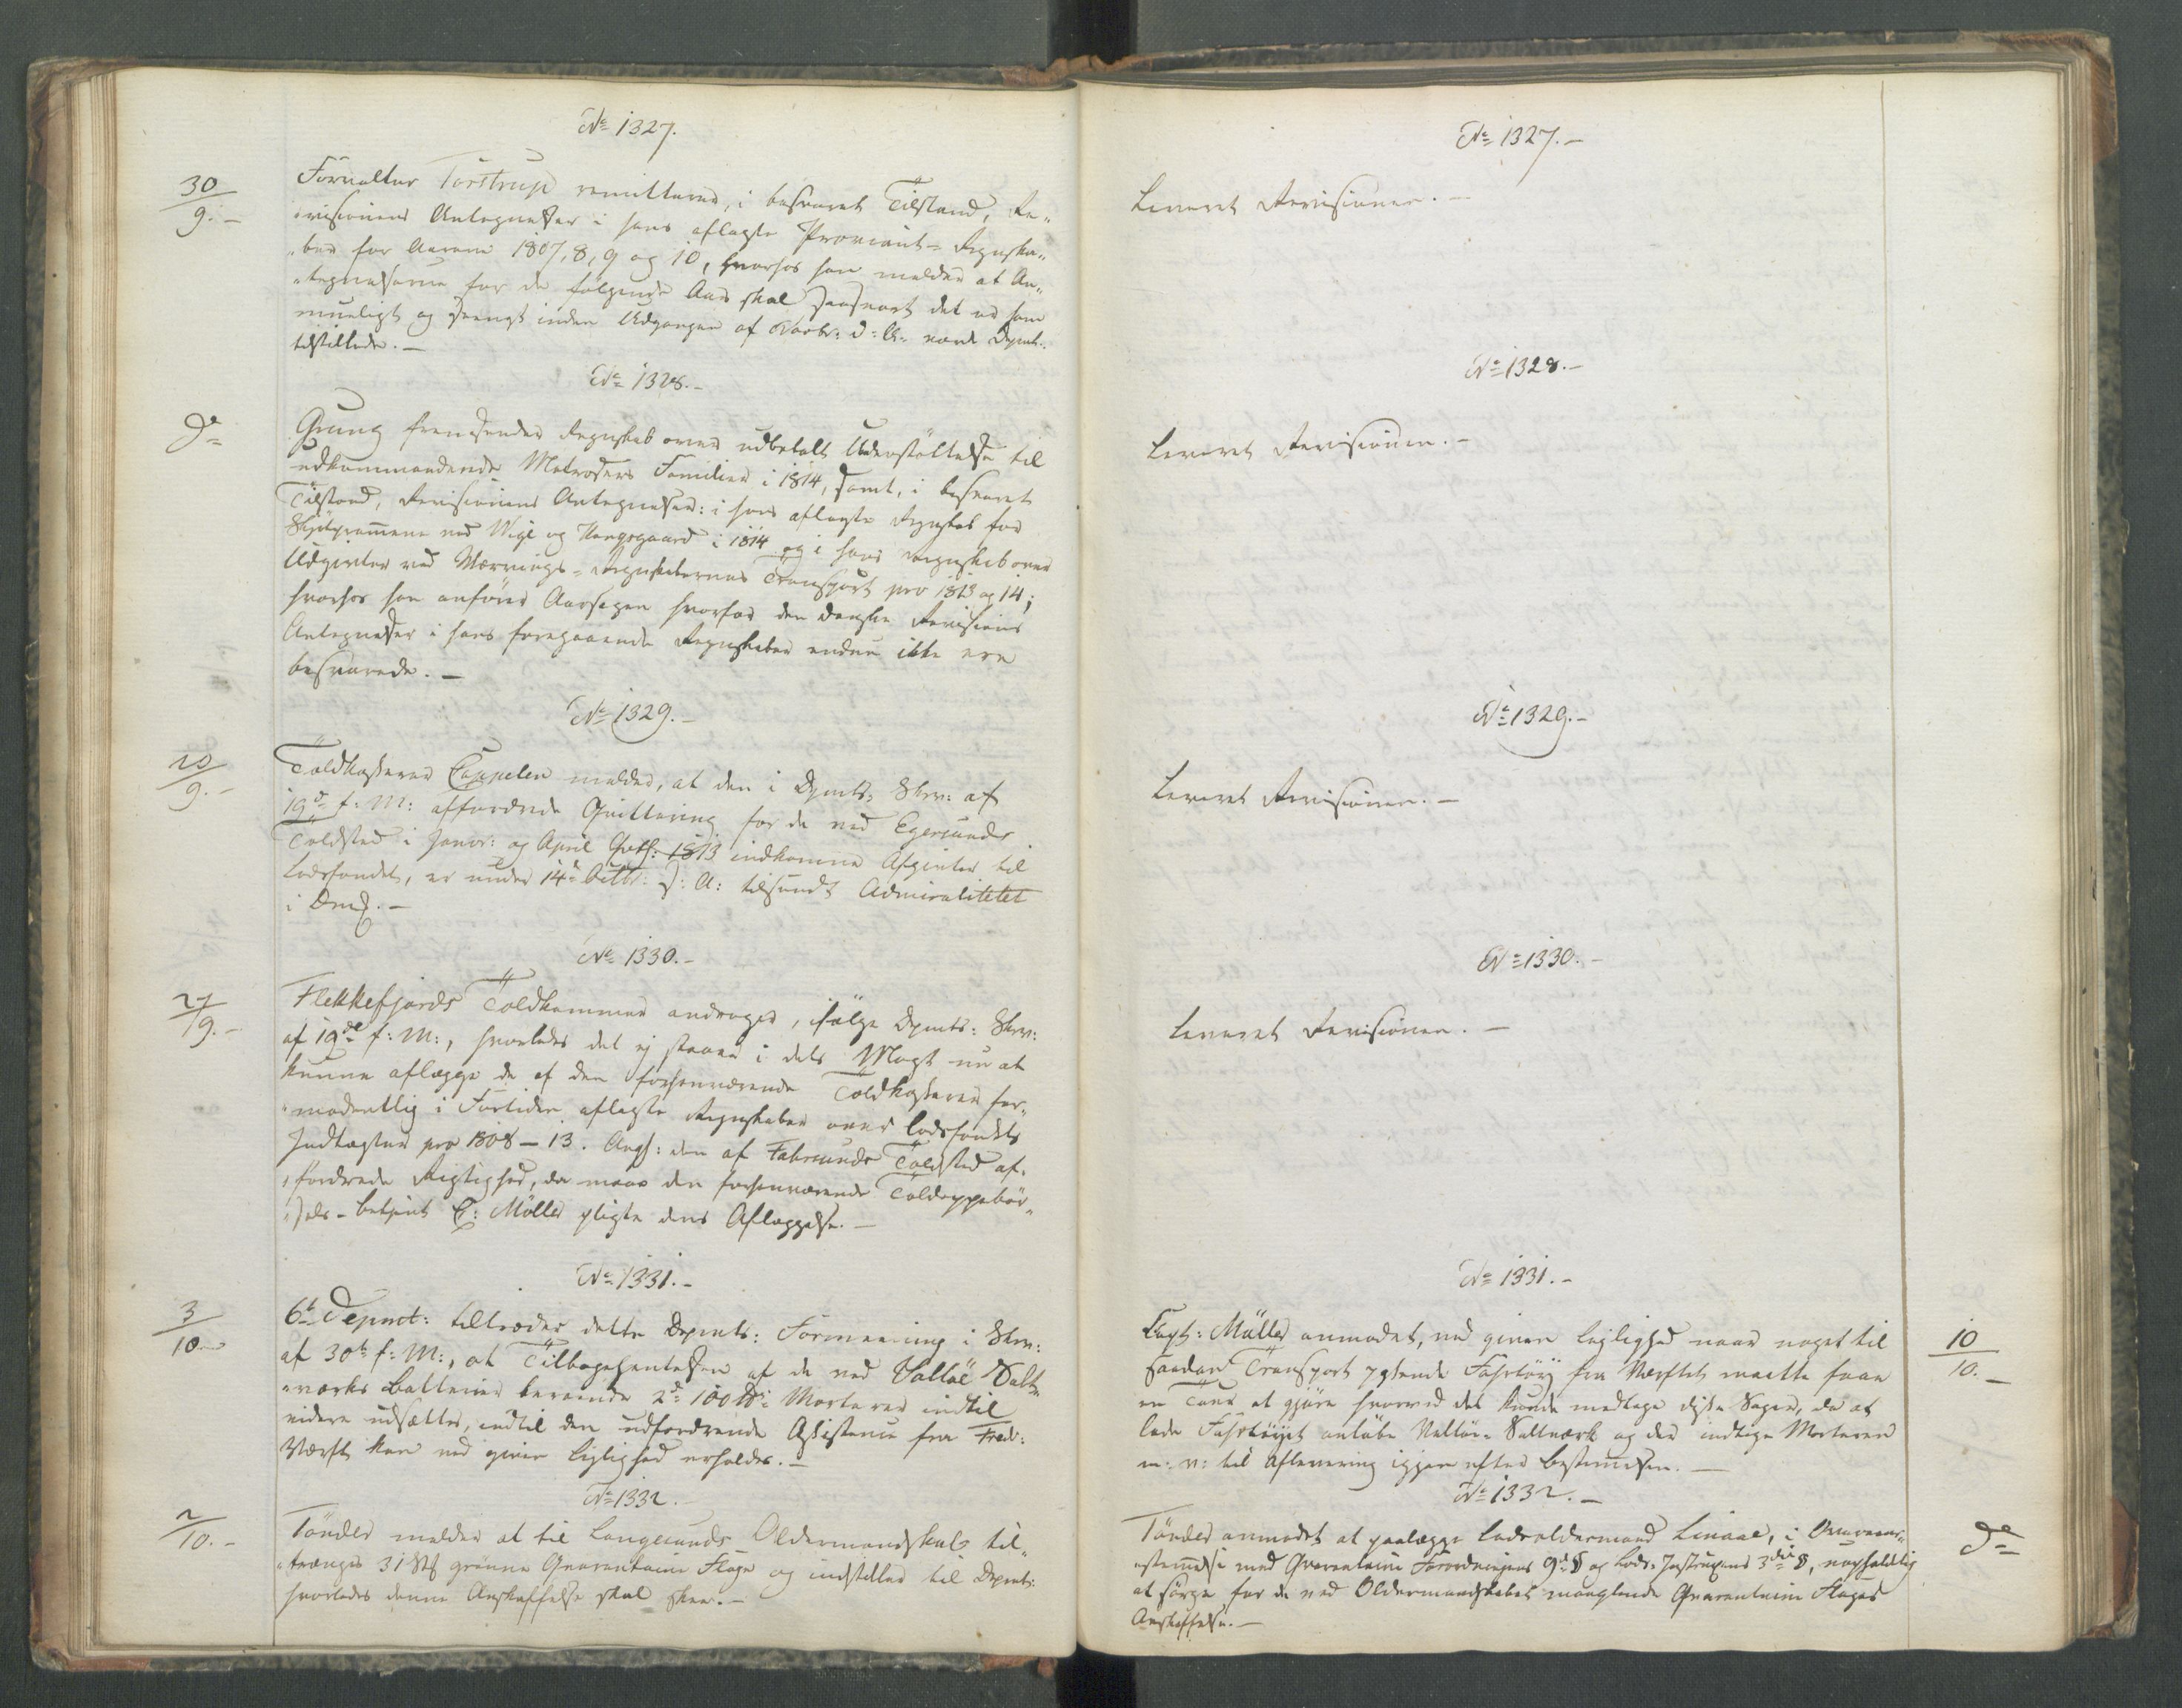 No 1327.
30/9.-
Forvalter Torstrup remitterer, i besvaret Tilstand, Re-
visionens Antegnelser i hans aflagte Proviant-Regnska-
ber for Aarene 1807, 8, 9 og 10, hvorhos han melder at An-
tegnelserne for de følgende Aar skal saasnart det er ham
mueligt og strengt inden Udgangen af Novbr: d: A: vorde Depmt:
tilstillede. -
No 1328. -
Do
Grung fremsender Regnskab over udbetalt Understøttelse til
udkommanderede Matrosers Familier i 1814, samt, i besvaret
Tilstand, Revisionens Antegnelser: i hans aflagte Regnskab for
ved Wige og i 1814 og i hans Regnskab over
Udgivter ved Regnskabernes Transport pro 1813 og 14;
hvorhos han anfører Aarsagen hvorfor den danske Revisions
Antegnelser i hans foregaaende Regnskaber endnu ikke ere
besvarede. -
No 1329. -
20/9. -
Toldkasserer Cappelen melder, at den i Dpmts: Skrv: af
19de f: M: affordrede Qvittering for de ved Egersunds
Toldsted i Janr: og April 1813 indkomne Afgivter til
Lodsfondet, er under 14de Octbr: s: A: tilsendt Admiralitetet
i Dmk. -
No 1330. -
27/9. -
Flekkefjords Toldkammer andrager, ifølge Dpmts: Skrv:
af 19de f: M:, hvorledes det ej staaer i dets Magt nu at
kunne aflægge de af den forhenværende Toldkasserer for-
modentlig i Fortiden aflagte Regnskaber over Lodsfondets
Indtægter pro 1808-13. Ang: den af Fahrsunds Toldsted af-
fordrede Rigtighed, da maae den forhenværende Toldoppebør-
sels-Betjent C: Møller pligte dens Aflæggelse. -
No 1331. -
3/10. -
6te Depmt: tiltræder dette Depmts: Formeening i Skrv:
af 30te f: M:, at Tilbagehentelsen af de ved Valløe Salt-
værks Batterier beroende 2de 100 ℔s Morterer indtil
videre udsættes, indtil den udfordrende Assistence fra Fredr:
Værft kan ved given Leilighed erholdes. -
No 1332.
2/10. -
Tønder melder at til Langesunds Oldermandskab til-
trænges 31 Stk grønne Quarantaine Flage og indstiller til Depmts:
hvorledes denne Anskaffelse skal skee. -
No 1327. -
Leveret Revisionen. -
No 1328. -
Leveret Revisionen. -
No 1329. -
Leveret Revisionen. -
No 1330. -
Leveret Revisionen. -
No 1331. -
Capt: Müller anmodet, ved given Leilighed naar noget til
saadan Transport Fahrtøy fra Værftet maatte faae
en Tour at gjøre hvorved det kunde medtage disse Sager, da at
lade Fahrtøyet anløbe Valløe Saltværk og der indtage Morterer
m: v: til Aflevering igjen efter Bestemmelsen. -
10/10. -
No 1332. -
Tønder anmodet at paalægge Lodsoldermand Linaae, i Overeens-
stemmelse med Qvarantaine Forordningens 9de § og Lods-Instruxens 3die §, uopholdelig
at sørge for de ved Oldermandskabet manglende Qvarantaine Flages
Anskaffelse. -
Do